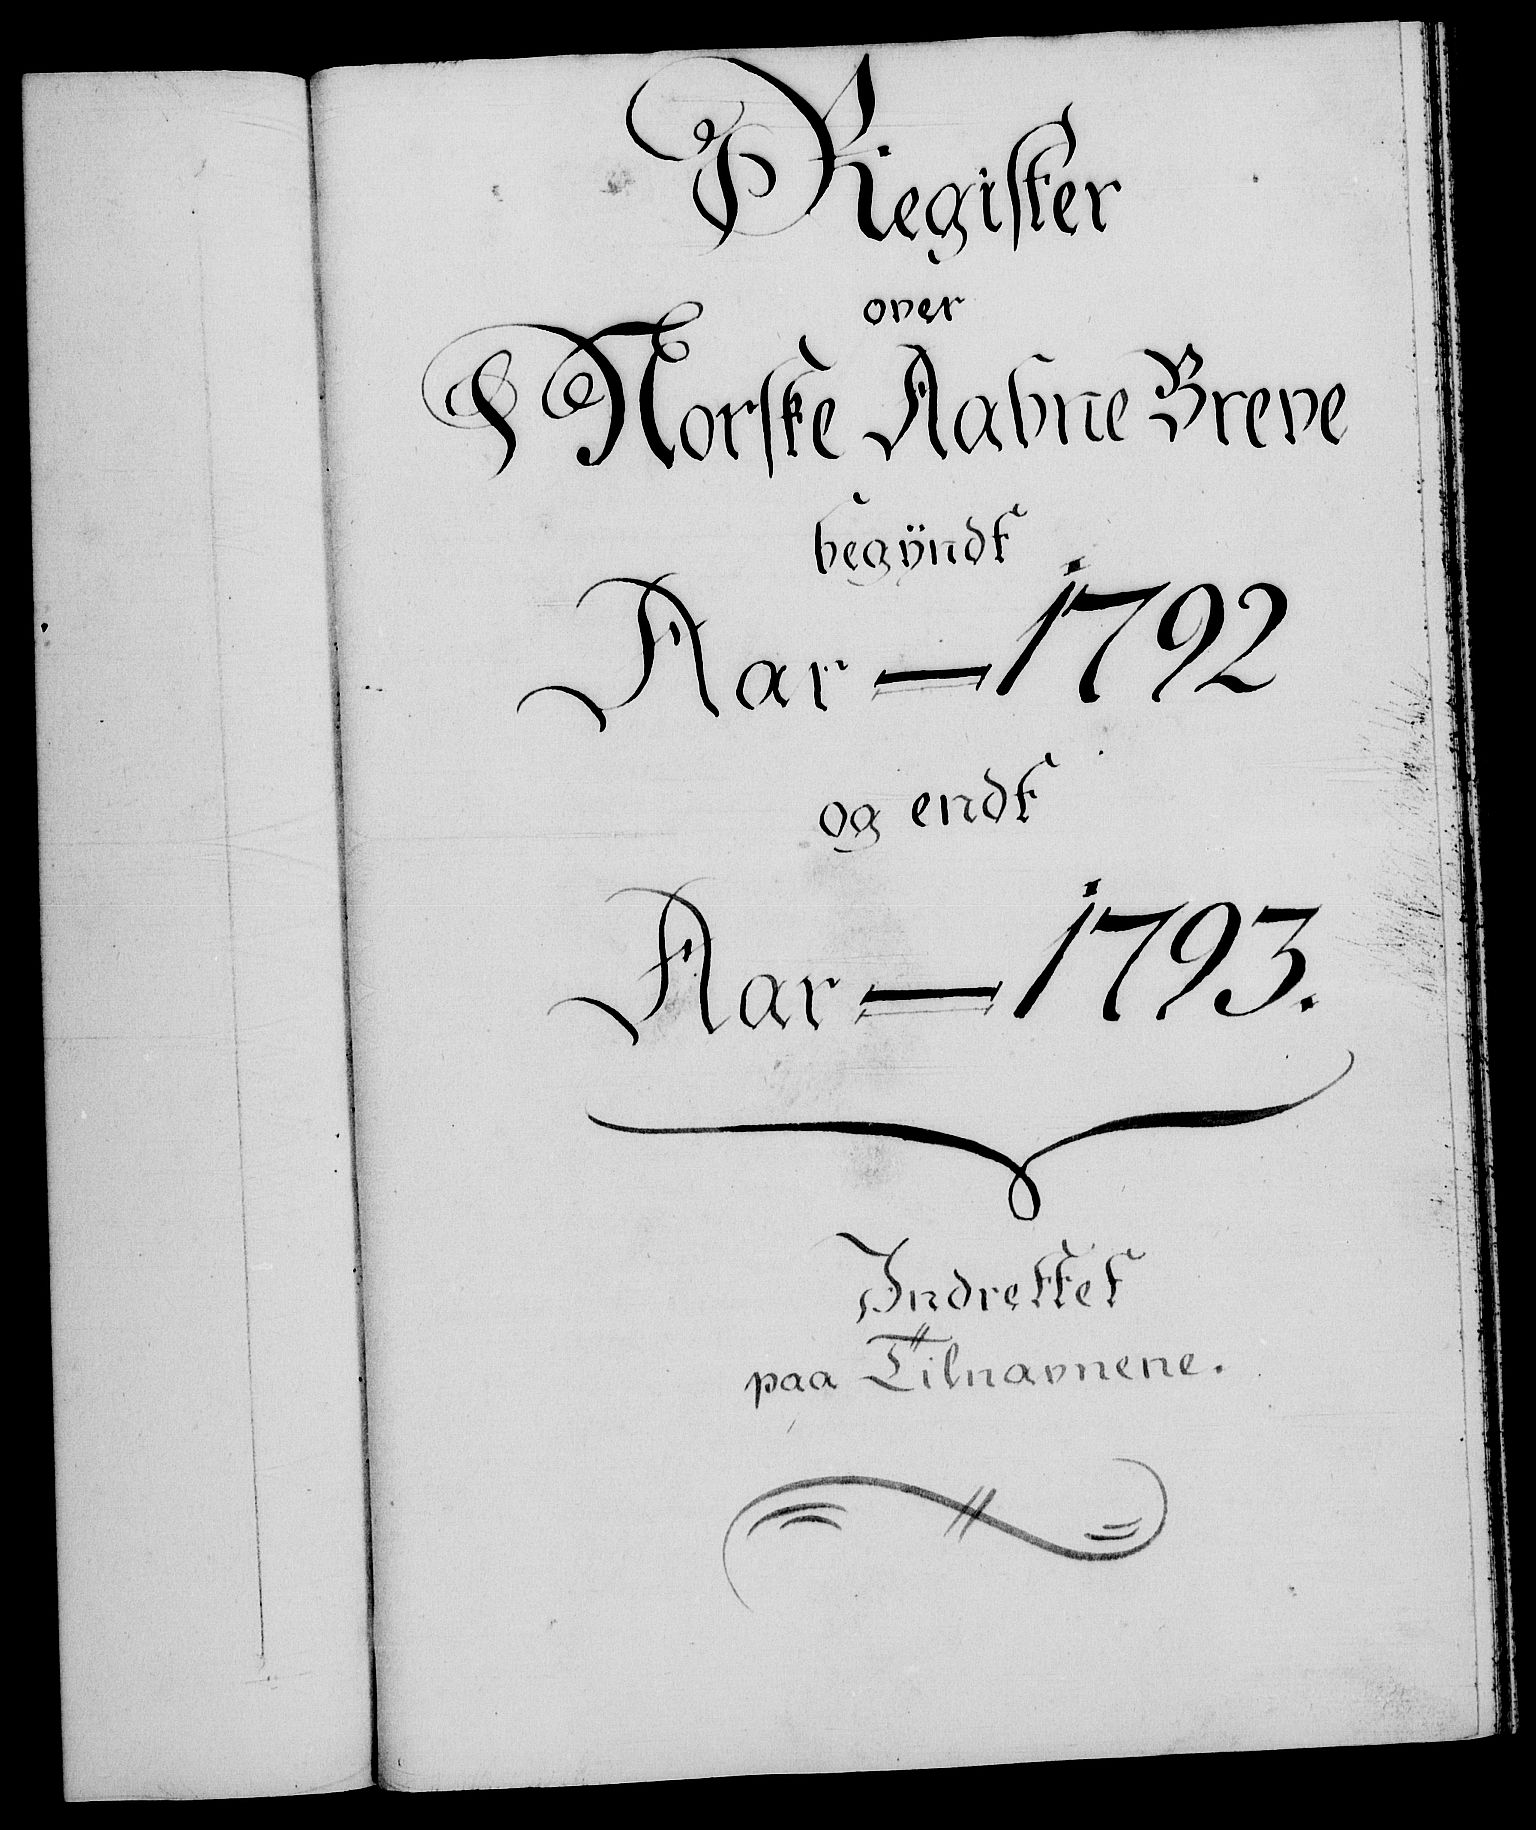 Register
over
Norske Aabne Breve
begÿndt
Aar — 1792
og endt
Aar — 1793.
Indrettet
paa Tilnavnene.